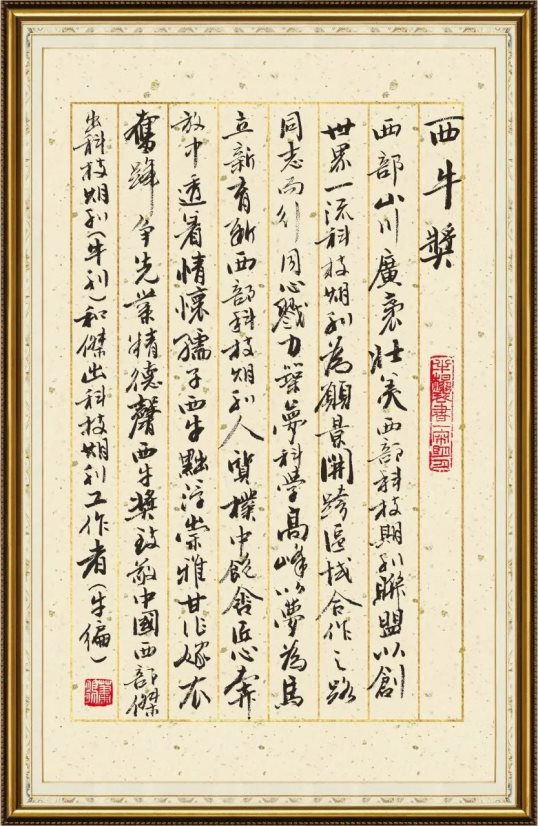 西牛獎
西部山川廣袤壯美西部科技期刊聯盟以創
世界一流科技期刊為願景開跨區域合作之路
同志而行同心戮力築夢科學高峰以夢為馬
立新育新西部科技期刊人質樸中飽含匠心奔
放中透着情懷孺子西牛黜浮崇雅甘作嫁衣
奮蹄爭先業精德馨西牛獎致敬中國西部傑
出科技期刊(牛刊)和傑出科技期刊工作者(牛編)